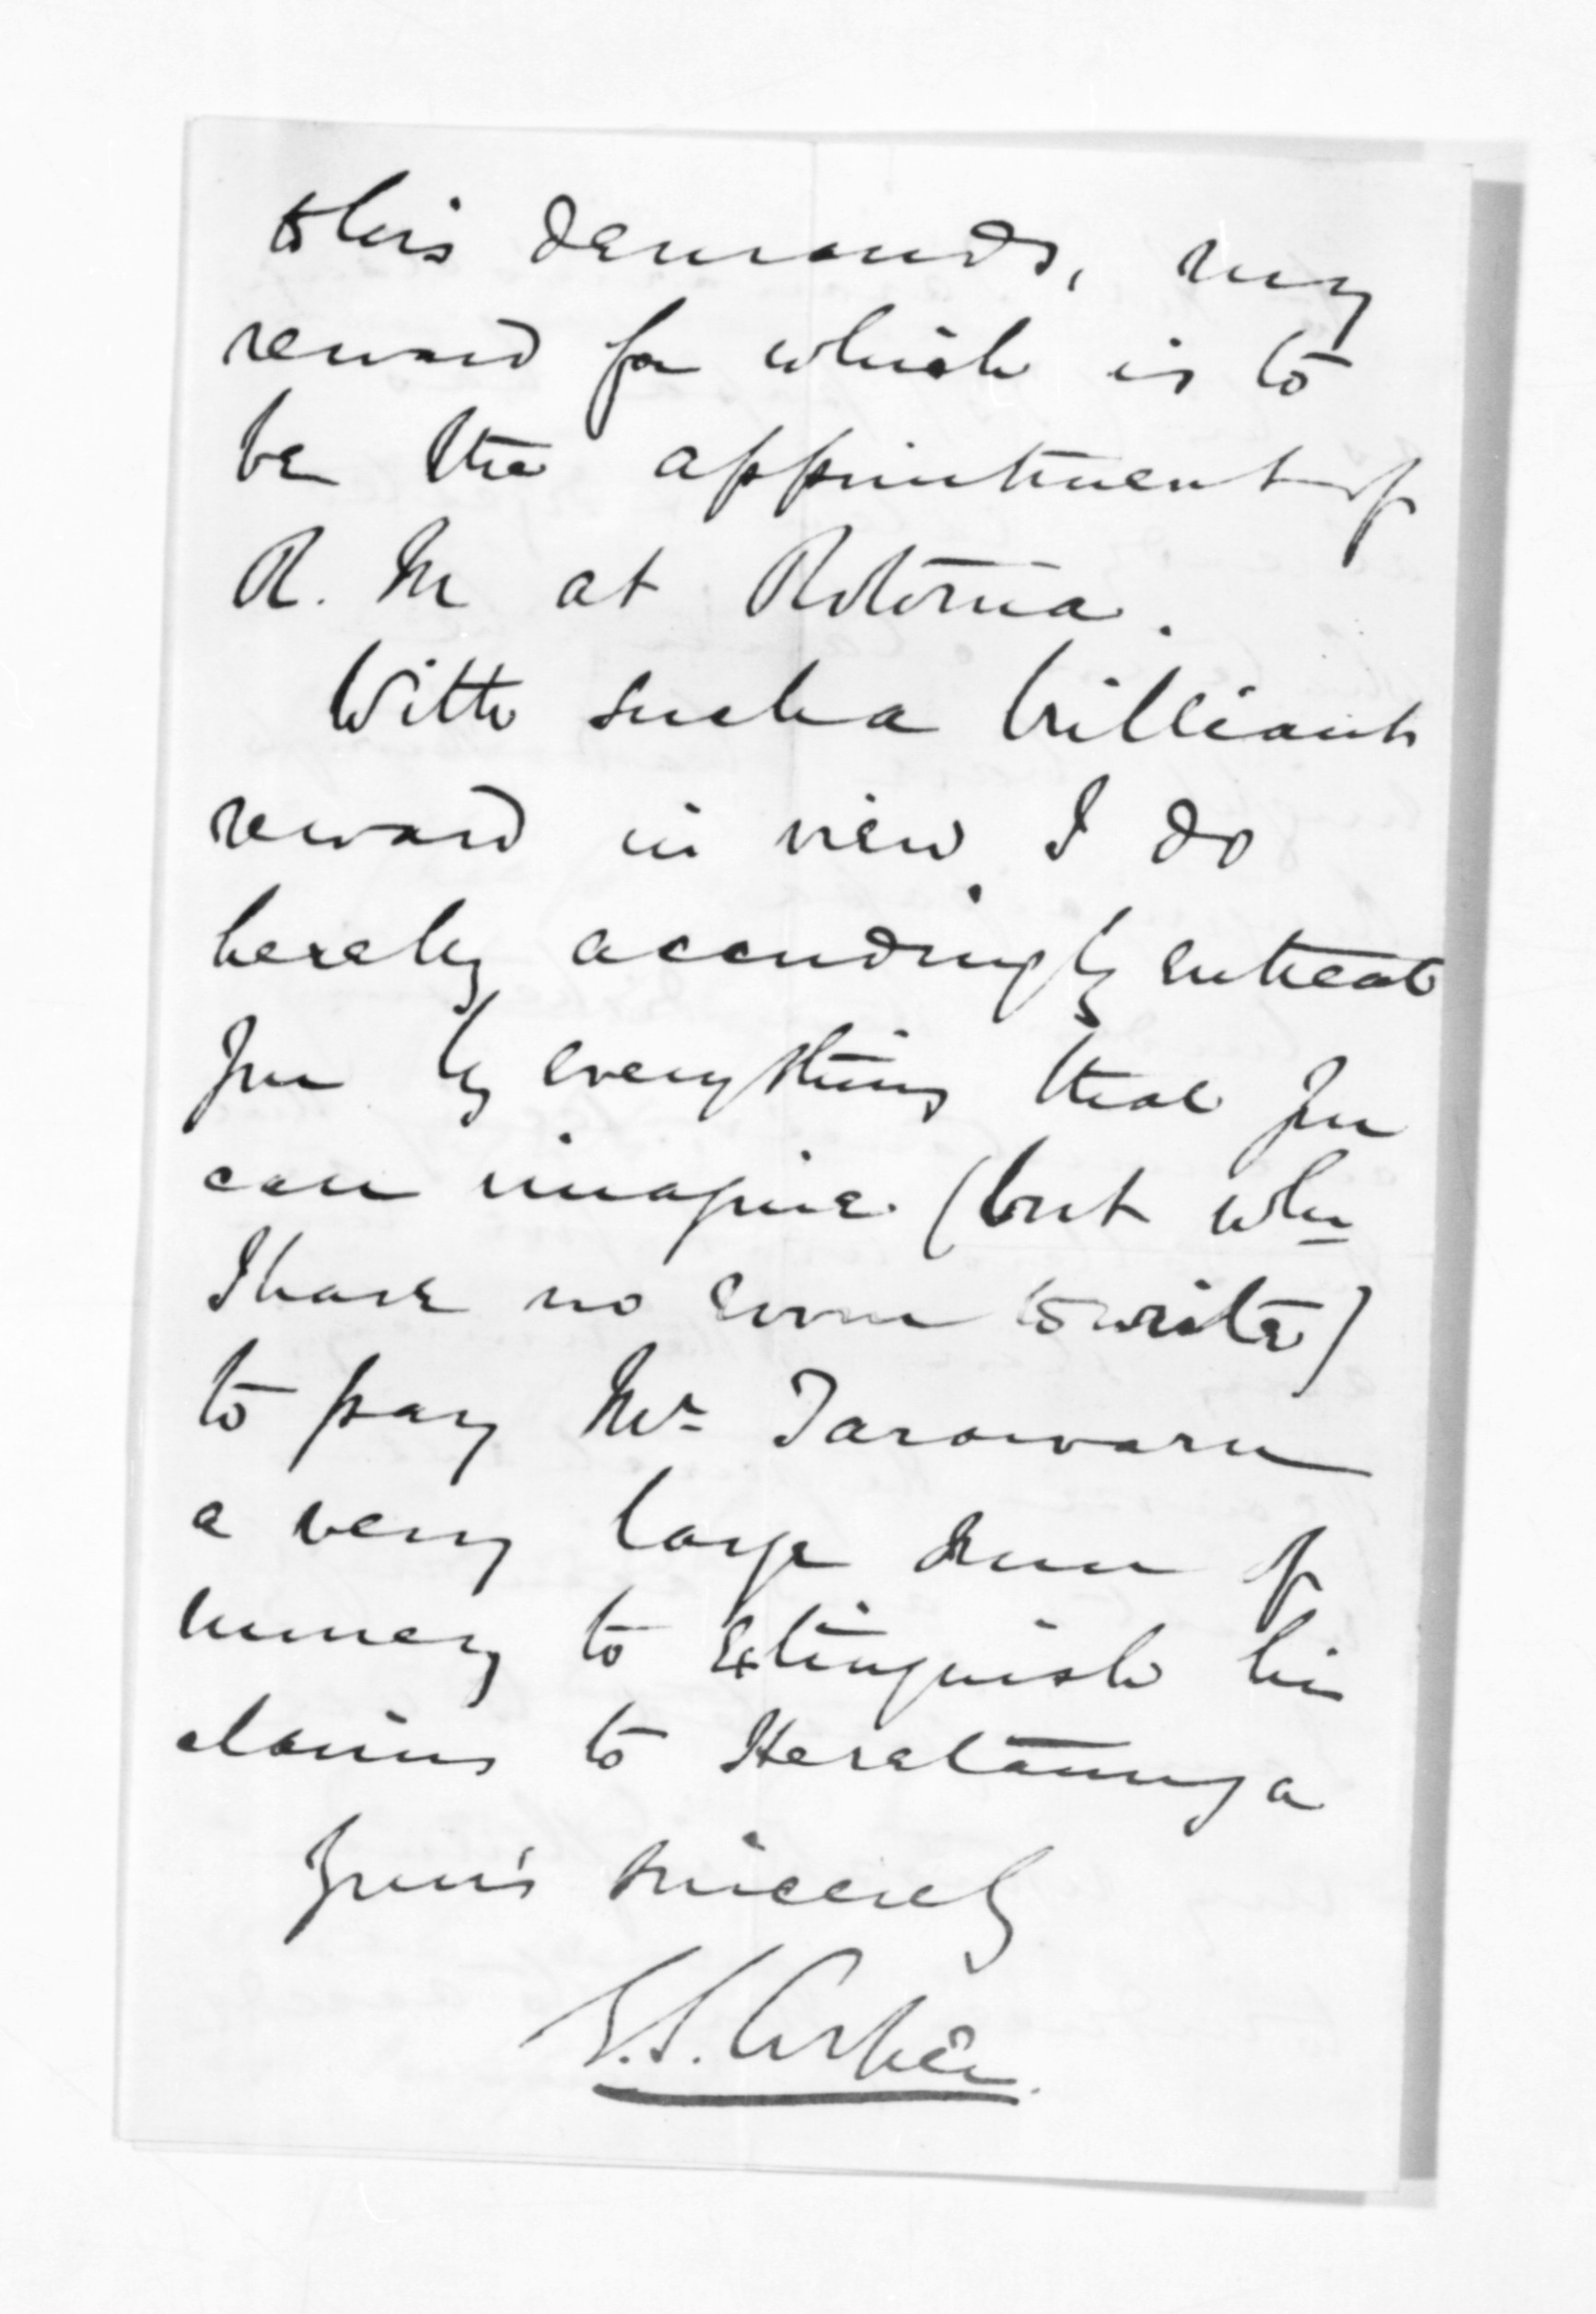 to his demands, my
reward for which is to
be the appointment of
R. M at Rotorua.
With such a brilliant
reward in view I do
hereby accordingly entreat
you by everything that you
can imagine (but wh
I have no room to write)
to pay Mr Tarawaru
a very large sum of
money to extinguish his
claims to Heretaunga
Your's sincerely
S.L.